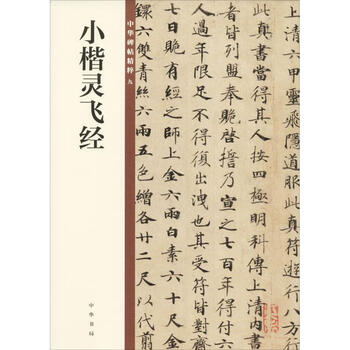 小楷灵飞经
中华碑帖精粹 九
中华书局
上清六甲靈飛隱道服此真符遊行八方
此真書當得其人按四極明科傳上清內書
者皆列盟奉贍啓誓乃宣之七百年得付
人過年限足不得復出洩也其受符皆對齋
七日贍有經之師上金六兩白素六十尺金
鐶六雙青絲六兩五色繒各廿二尺以代翦